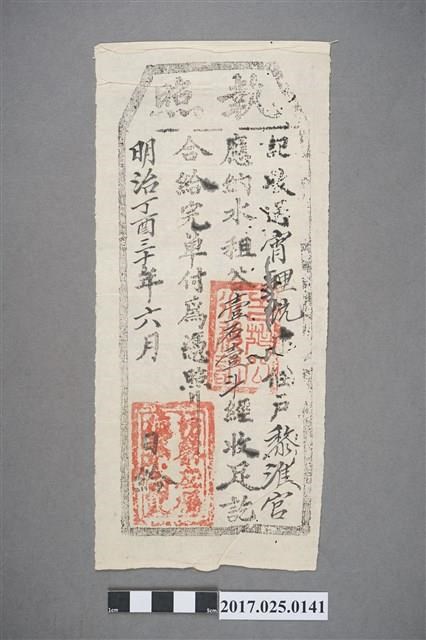 執照
記收送霄裡坑 佃戶黎淮官
應納水租谷壹石壹斗經收足訖
合給完單付為憑照
明治丁酉三十年六月 日給
1cm
5cm
2017.025.0141